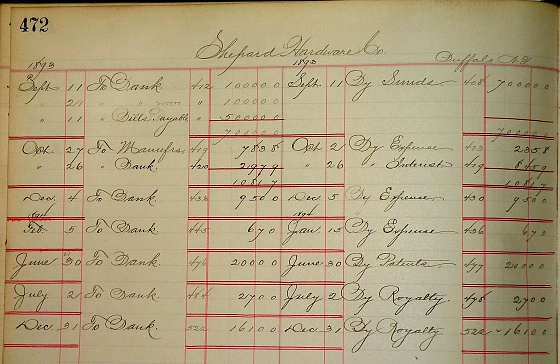 472
Shepard Hardware Co.
Buffalo N.Y.
1893 1893
Sept 11 To Bank 412 1000 00 Sept 11 By Sunds 408 7000 00
" 21 " " " 1000 00
" 11 " Bills Payable " 5000 00
7000 00 7000 00
Oct 27 To Manufrs 419 78 38 Oct 2 By Expense 413 23 58
" 26 " Bank 420 29 79 " 26 " Interest 419 84 59
108 17 108 17
Dec 4 To Bank 432 95 00 Dec 5 By Expense 430 95 00
1894 1894
Feb 5 To Bank 445 6 70 Jan 15 By Expense 436 6 70
June 30 To Bank 476 200 00 June 30 By Patents 477 200 00
July 2 To Bank 484 27 00 July 2 By Royalty 478 27 00
Dec 31 To Bank 522 161 00 Dec 31 By Royalty 522 161 00